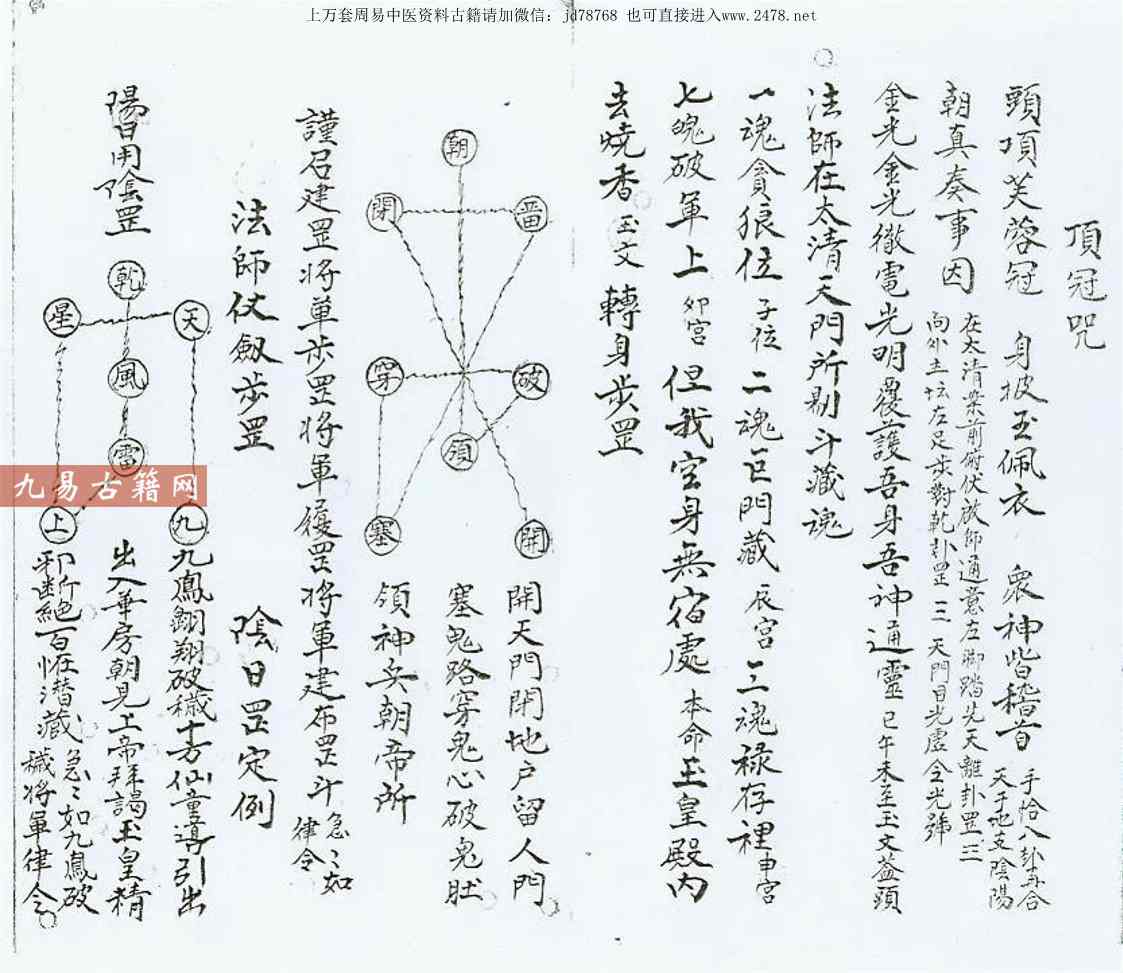 上万套周易中医资料古籍请加微信：jd78768 也可直接进入www.2478.net
頂冠咒
頭頂芙蓉冠 身披玉佩衣 衆神皆稽首 手恰八卦再合天干地支陰陽
朝真奏事因 在太清案前俯伏啟師通意左脚踏先天離卦罡三
向外主坛左足步對乾卦罡三 天門目光虚令光號
金光金光徹電光明覆護吾身吾神通靈 巳午未至玉文蓋頭
法師在太清天門所剔斗藏魂
一魂貪狼位 子位 二魂巨門藏 辰宮 三魂禄存裡 申宮
七魄破軍上 卯宮 但我空身無宿處 本命玉皇殿内
去燒香 玉文 轉身步罡
朝
閉
留
穿
破
領
塞
開
開天門閉地户留人門
塞鬼路穿鬼心破鬼肚
領神兵朝帝所
謹召建罡将軍步罡将軍履罡将軍建布罡斗 急々如律令
法師仗劔步罡 陰日罡定例
陽日用陰罡
乾
星
天
風
雷
上
九
九鳳翺翔破穢十方仙童導引出
出入華房朝見上帝拜謁玉皇精
邪断絶百怪潜藏 急々如九鳳破穢将軍律令
九易古籍网